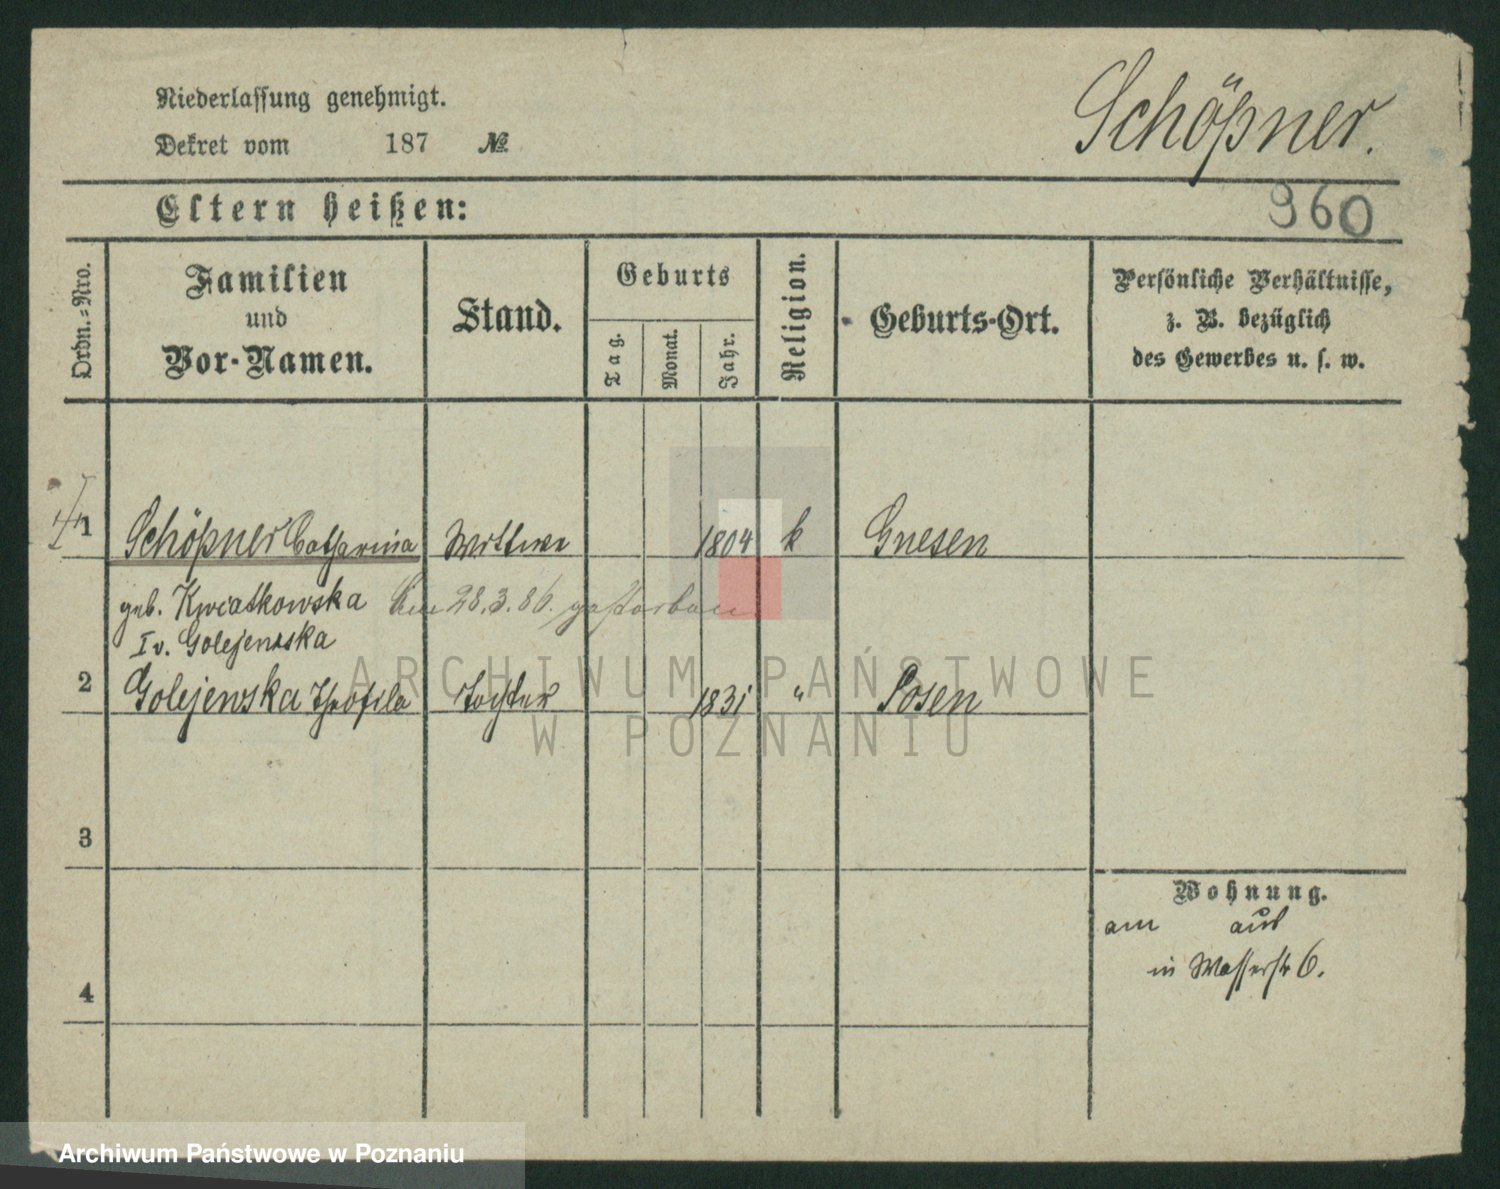 Niederlassung genehmigt.
Dekret vom 187 №
Schößner.
Eltern heißen:
960
Ordn.-Nro.
Familien
und
Vor-Namen.
Stand.
Geburts
Tag.
Monat.
Jahr.
Religion.
Geburts-Ort.
Persönliche Verhältnisse,
z. B. bezüglich
des Gewerbes u. s. w.
1 Schößner Catharina Wittwe 1804 k Gnesen
geb. Kwiatkowska 28.3.86. gestorben
I v. Golejewska
2 Golejewska Theofila Tochter 1831 " Posen
3
4
Wohnung.
am aus
in Wasserstr 6.
ARCHIWUM PAŃSTWOWE
W POZNANIU
Archiwum Państwowe w Poznaniu